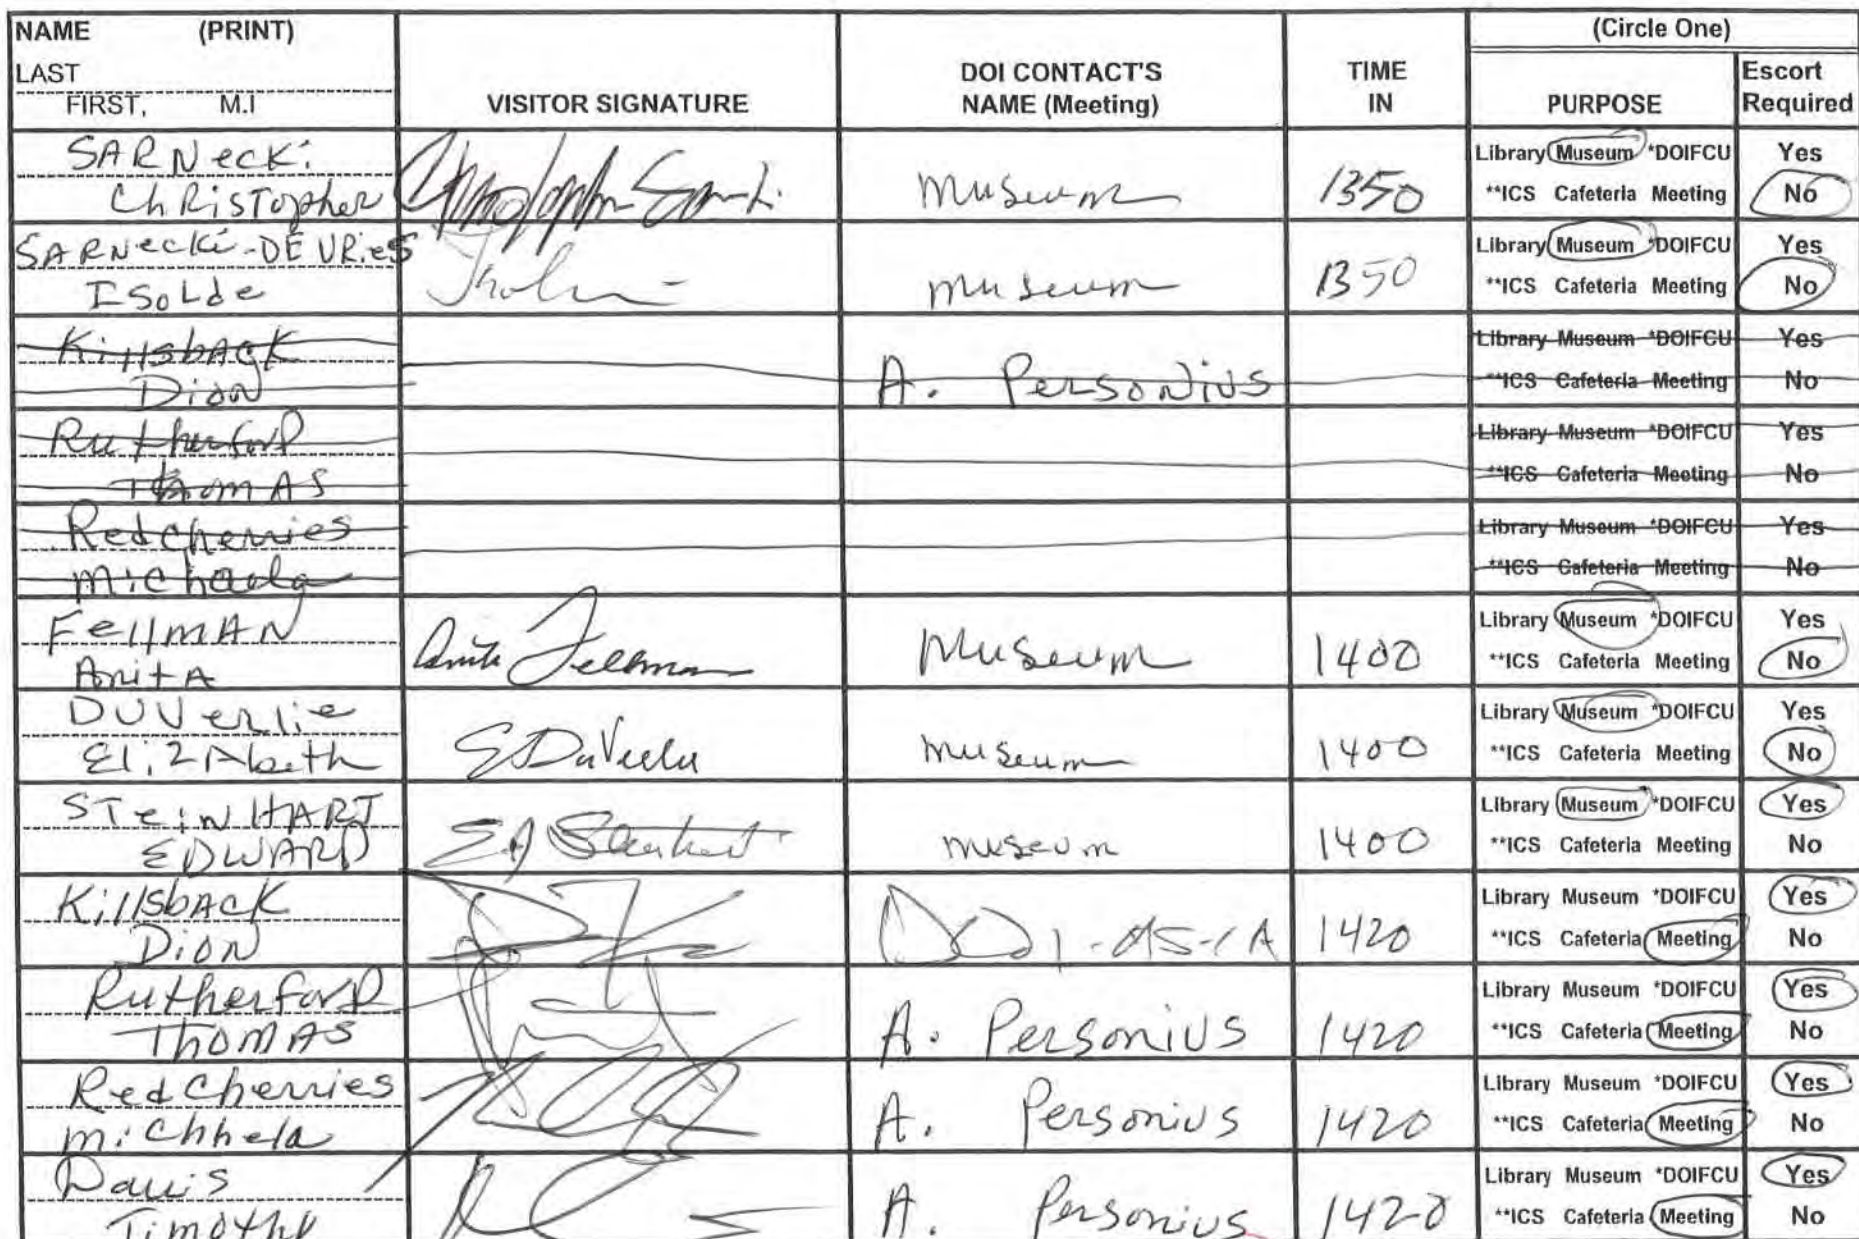 NAME (PRINT)
LAST
FIRST, M.I
VISITOR SIGNATURE
DOI CONTACT'S
NAME (Meeting)
TIME
IN
(Circle One)
PURPOSE
Escort
Required
SARNecki
ChRisTopher
museum
1350
Library Museum *DOIFCU Yes
**ICS Cafeteria Meeting No
SARNecki-DEVRieS
ISoLde
museum
1350
Library Museum *DOIFCU Yes
**ICS Cafeteria Meeting No
KillsbACK
DioN
A. PersoNius
Library Museum *DOIFCU Yes
**ICS Cafeteria Meeting No
RutherforD
ThomAS
Library Museum *DOIFCU Yes
**ICS Cafeteria Meeting No
Redcherries
michaela
Library Museum *DOIFCU Yes
**ICS Cafeteria Meeting No
FellmAN
AnitA
Anita Fellman
Museum
1400
Library Museum *DOIFCU Yes
**ICS Cafeteria Meeting No
DUVerlie
ElizAbeth
museum
1400
Library Museum *DOIFCU Yes
**ICS Cafeteria Meeting No
STeiNHART
EDWARD
museum
1400
Library Museum *DOIFCU Yes
**ICS Cafeteria Meeting No
KillSbACK
DioN
DOI-AS-IA
1420
Library Museum *DOIFCU Yes
**ICS Cafeteria Meeting No
RutherforD
THOMAS
A. Personius
1420
Library Museum *DOIFCU Yes
**ICS Cafeteria Meeting No
Red Cherries
michhela
A. Personius
1420
Library Museum *DOIFCU Yes
**ICS Cafeteria Meeting No
Davis
Timothy
A. Personius
1420
Library Museum *DOIFCU Yes
**ICS Cafeteria Meeting No